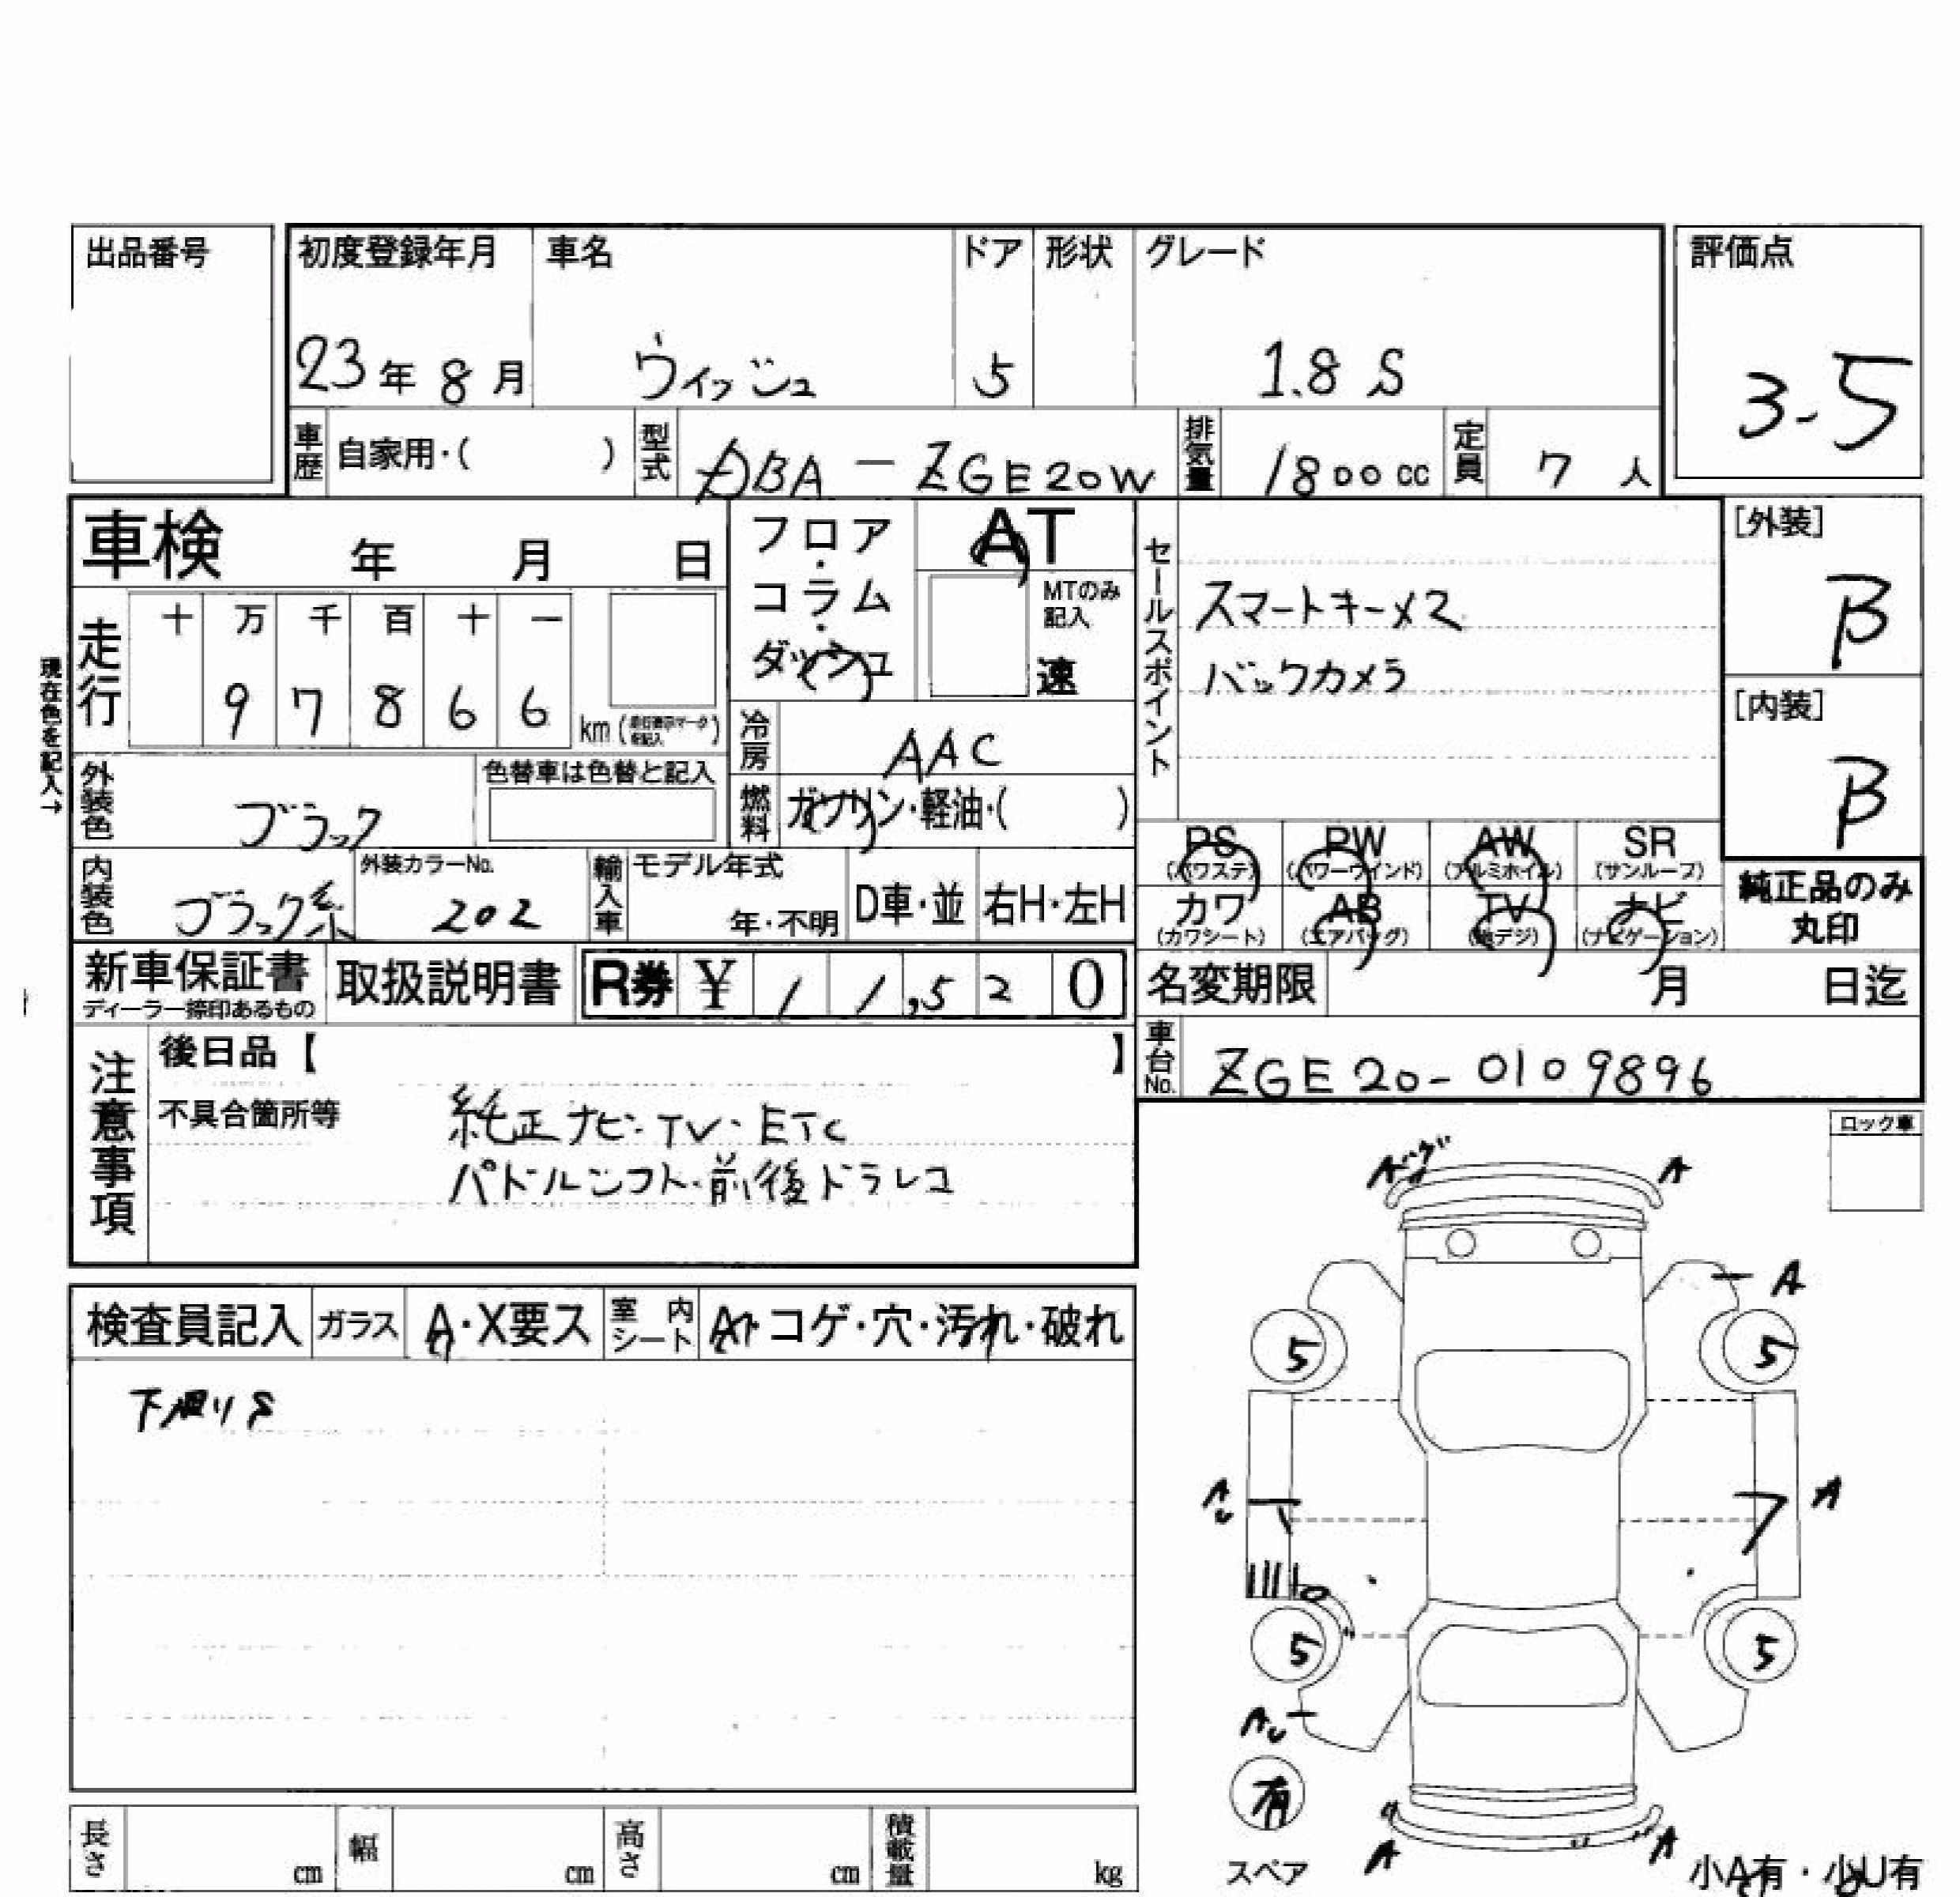 出品番号
初度登録年月 車名 ドア 形状 グレード 評価点
23年8月 ウィッシュ 5 1.8 S 3.5
車歴 自家用・( ) 型式 DBA-ZGE20W 排気量 1800cc 定員 7人
車検 年 月 日
フロア・コラム・ダッシュ AT
MTのみ記入
速
セールスポイント
スマートキー×2
バックカメラ
[外装]
B
[内装]
B
現在色を記入→
走行 十 万 千 百 十 一
9 7 8 6 6 km
冷房 AAC
外装色 ブラック 色替車は色替と記入
燃料 ガソリン・軽油・( )
PS PW AW SR
(パワステ) (パワーウインド) (アルミホイル) (サンルーフ)
カワ AB TV ナビ
(カワシート) (エアバッグ) (地デジ) (ナビゲーション)
純正品のみ
丸印
内装色 ブラック系 外装カラーNo. 202 輸入車 モデル年式 年・不明 D車・並 右H・左H
新車保証書 取扱説明書 R券 ¥ 1 1,5 2 0
ディーラー捺印あるもの
名変期限 月 日迄
車台No. ZGE20-0109896
注意事項
後日品【 】
不具合箇所等
純正ナビ・TV・ETC
パドルシフト・前後ドラレコ
ロック車
検査員記入 ガラス A・X要ス 室内シート コゲ・穴・汚れ・破れ
A A
A
5 5
A
5 5
有
スペア
A A
小A有・小U有
長さ cm 幅 cm 高さ cm 積載量 kg